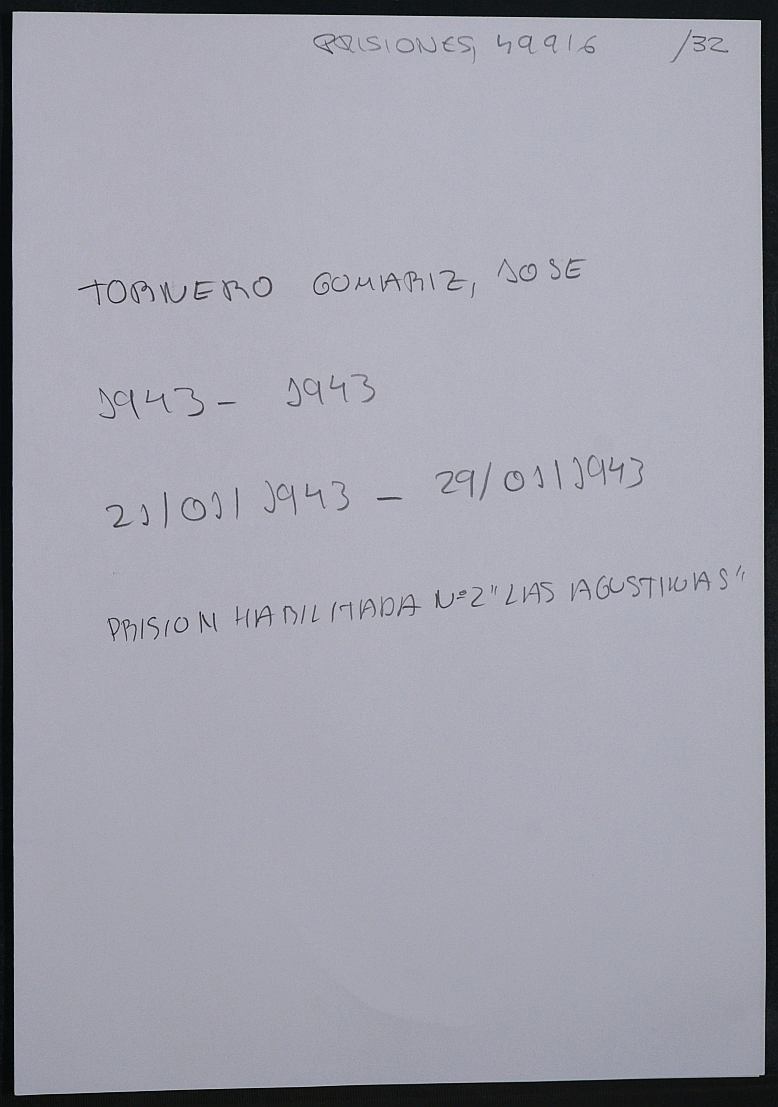 PRISIONES, 49916 /32
TORNERO GOMARIZ, JOSE
1943 - 1943
21/01/1943 - 29/01/1943
PRISION HABILITADA Nº2 "LAS AGUSTINAS"